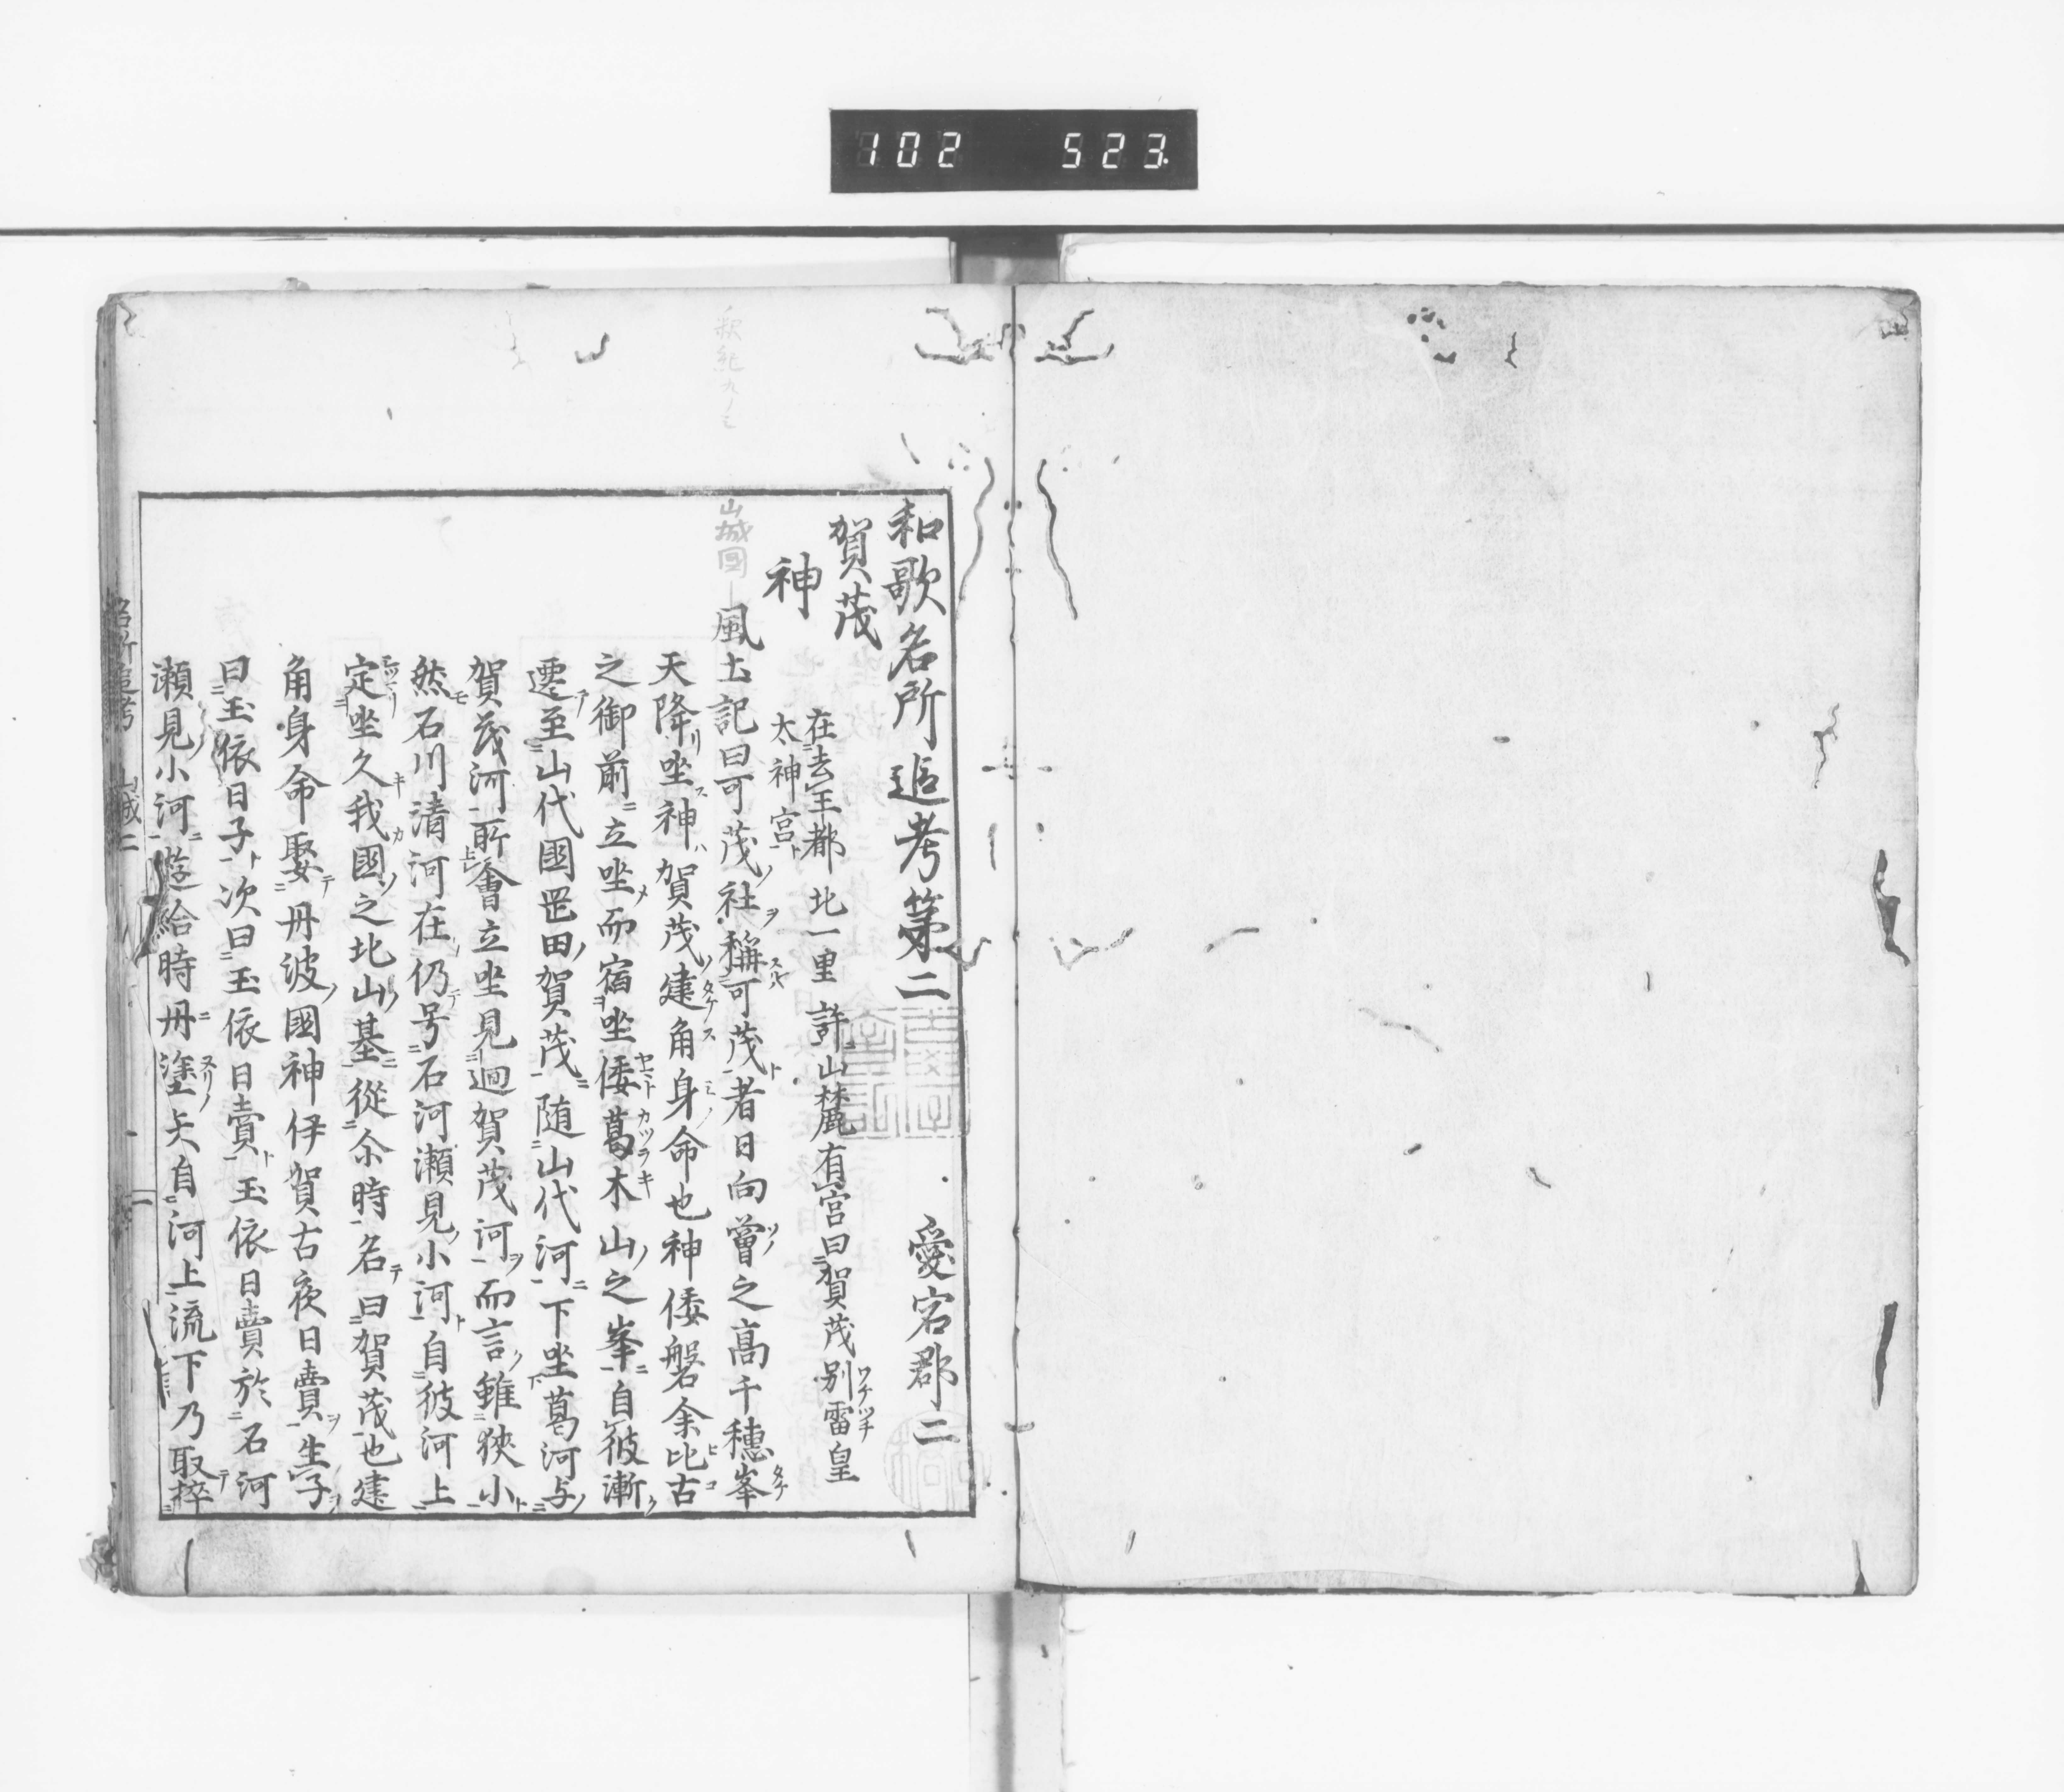 102 523.
和歌名所追考第二 愛宕郡二
賀茂
在去王都北一里許山麓有宮曰賀茂別雷皇
太神宮
神
山城国
風土記曰可茂社稱可茂者日向曾之高千穗峯
天降坐神賀茂建角身命也神倭磐余比古
之御前立坐而宿坐倭葛木山之峯自彼漸
遷至山代國罡田賀茂随山代河下坐葛河与
賀茂河所會立坐見迴賀茂河而言雖狹小
然石川清河在仍号石河瀬見小河自彼河上
定坐久我國之北山基從尒時名曰賀茂也建
角身命娶丹波國神伊賀古夜日賣生子
曰玉依日子次曰玉依日賣玉依日賣於石河
瀬見小河遊給時丹塗矢自河上流下乃取㨔
名所追考 山城二